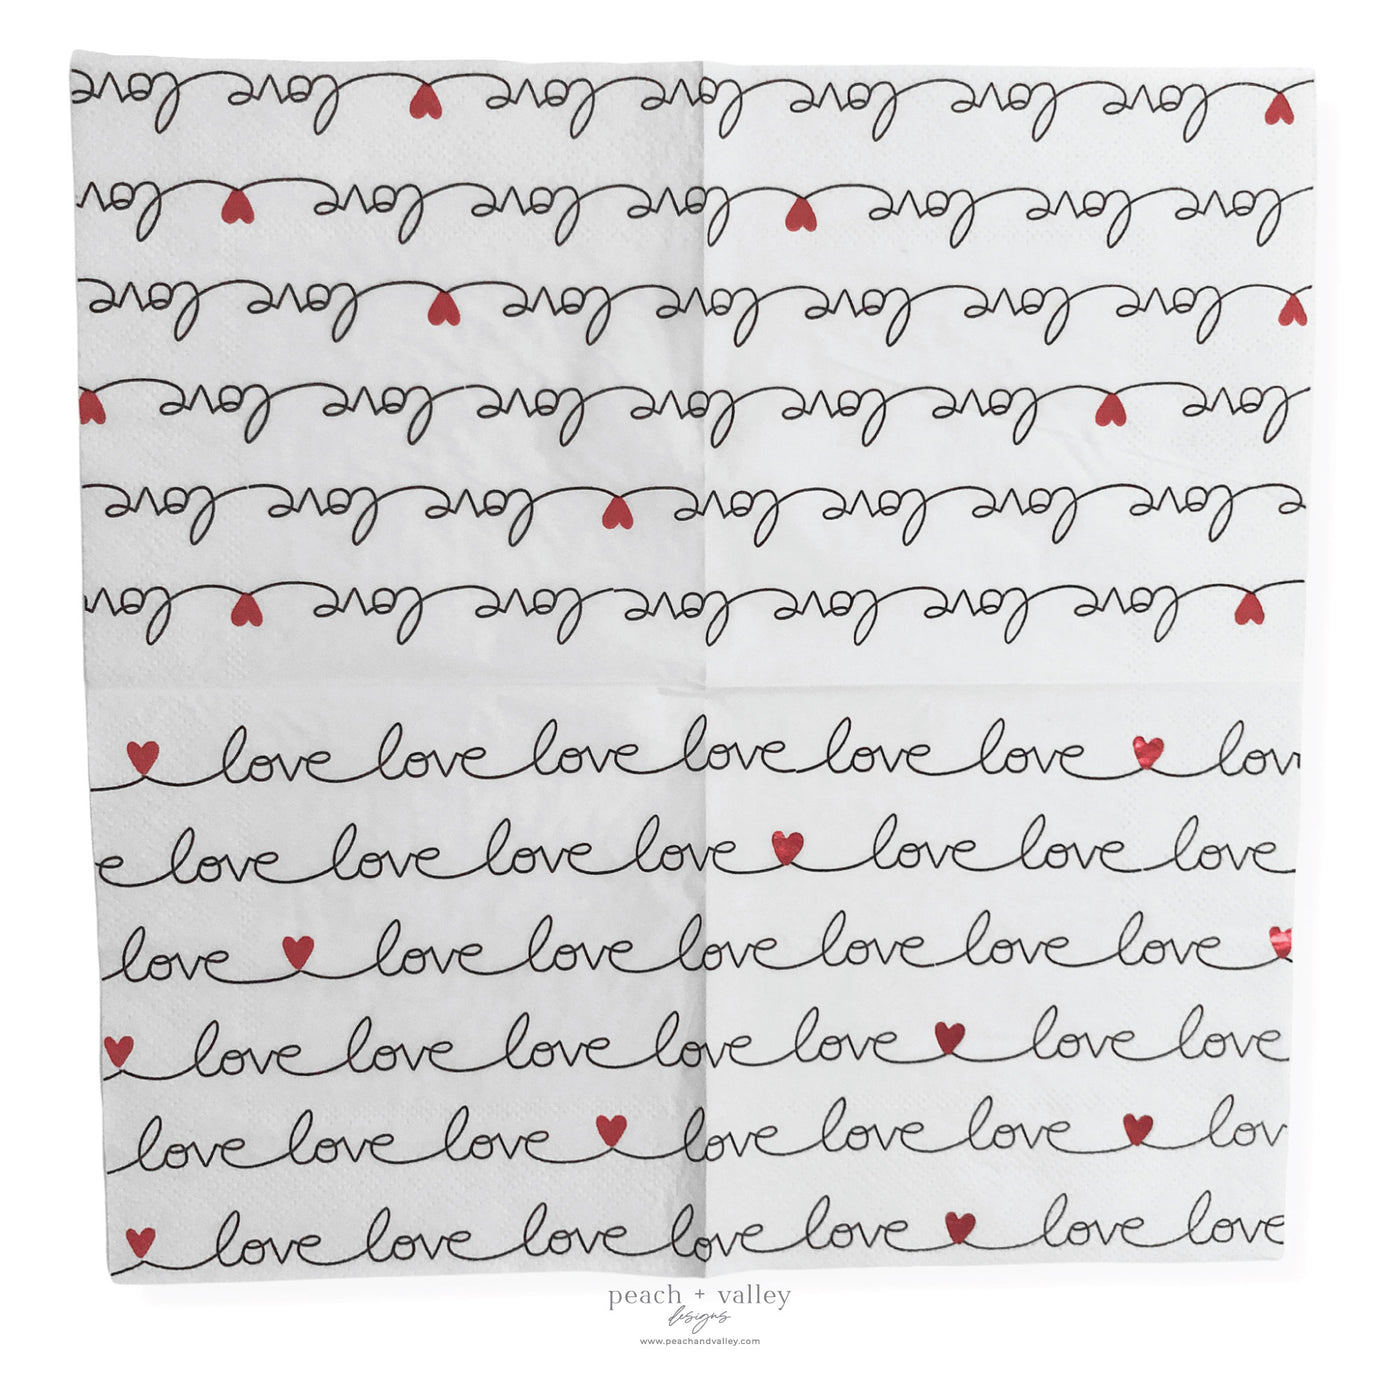 love love love love love love love
love love love love love love lov
love love love love love love love
love love love love love love love
e love love love love love love love
love love love love love love lov
love love love love love love lov
e love love love love love love love
love love love love love love love
love love love love love love love
love love love love love love lov
love love love love love love love
peach + valley
designs
www.peachandvalley.com